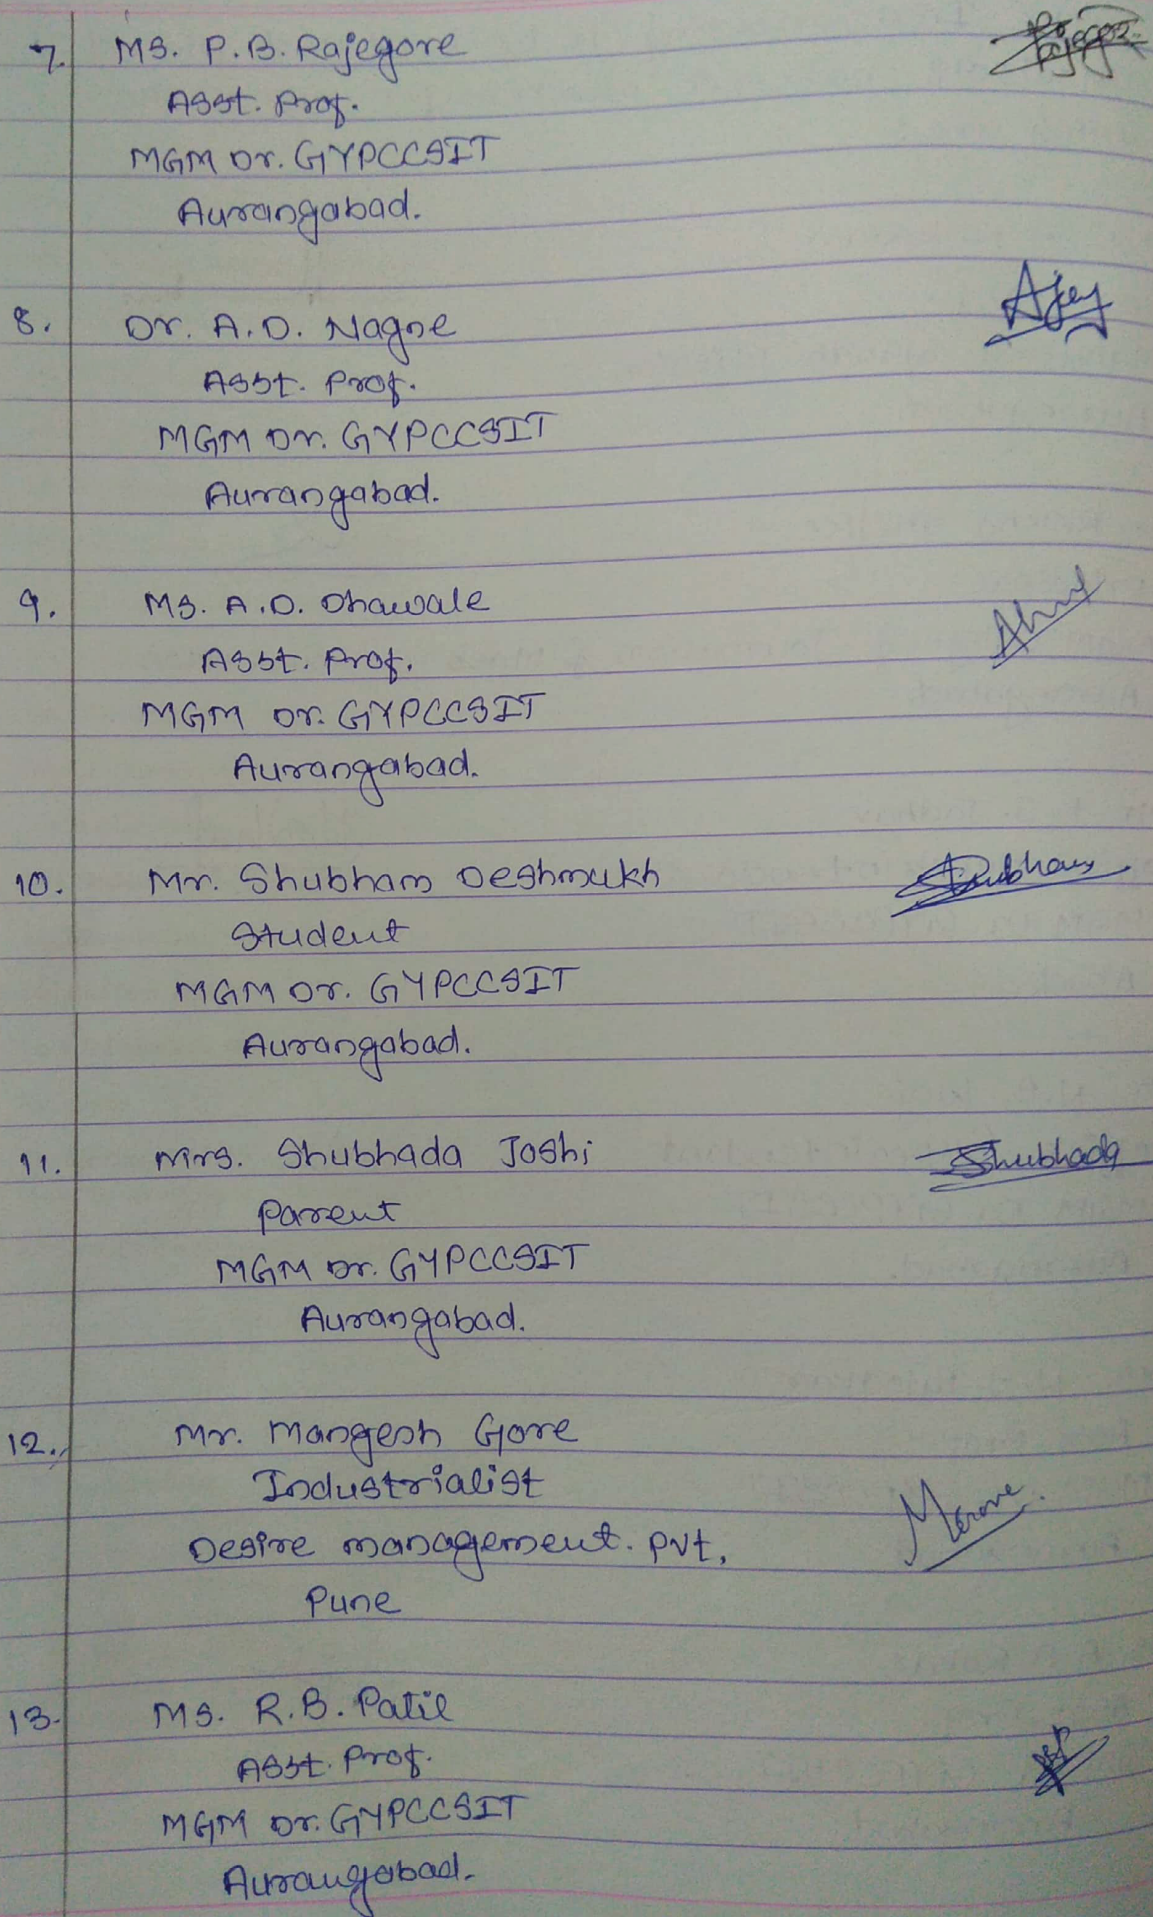 7. Ms. P.B. Rajegore
Asst. Prof.
MGM Dr. GYPCCSIT
Aurangabad.
8. Dr. A.D. Nagne Ajay
Asst. Prof.
MGM Dr. GYPCCSIT
Aurangabad.
9. Ms. A.D. Dhawale
Asst. Prof.
MGM Dr. GYPCCSIT
Aurangabad.
10. Mr. Shubham Deshmukh Shubham
Student
MGM Dr. GYPCCSIT
Aurangabad.
11. Mrs. Shubhada Joshi Shubhada
Parent
MGM Dr. GYPCCSIT
Aurangabad.
12. Mr. Mangesh Gore
Industrialist
Desire management. Pvt,
Pune
13. Ms. R.B. Patil
Asst. Prof.
MGM Dr. GYPCCSIT
Aurangabad.